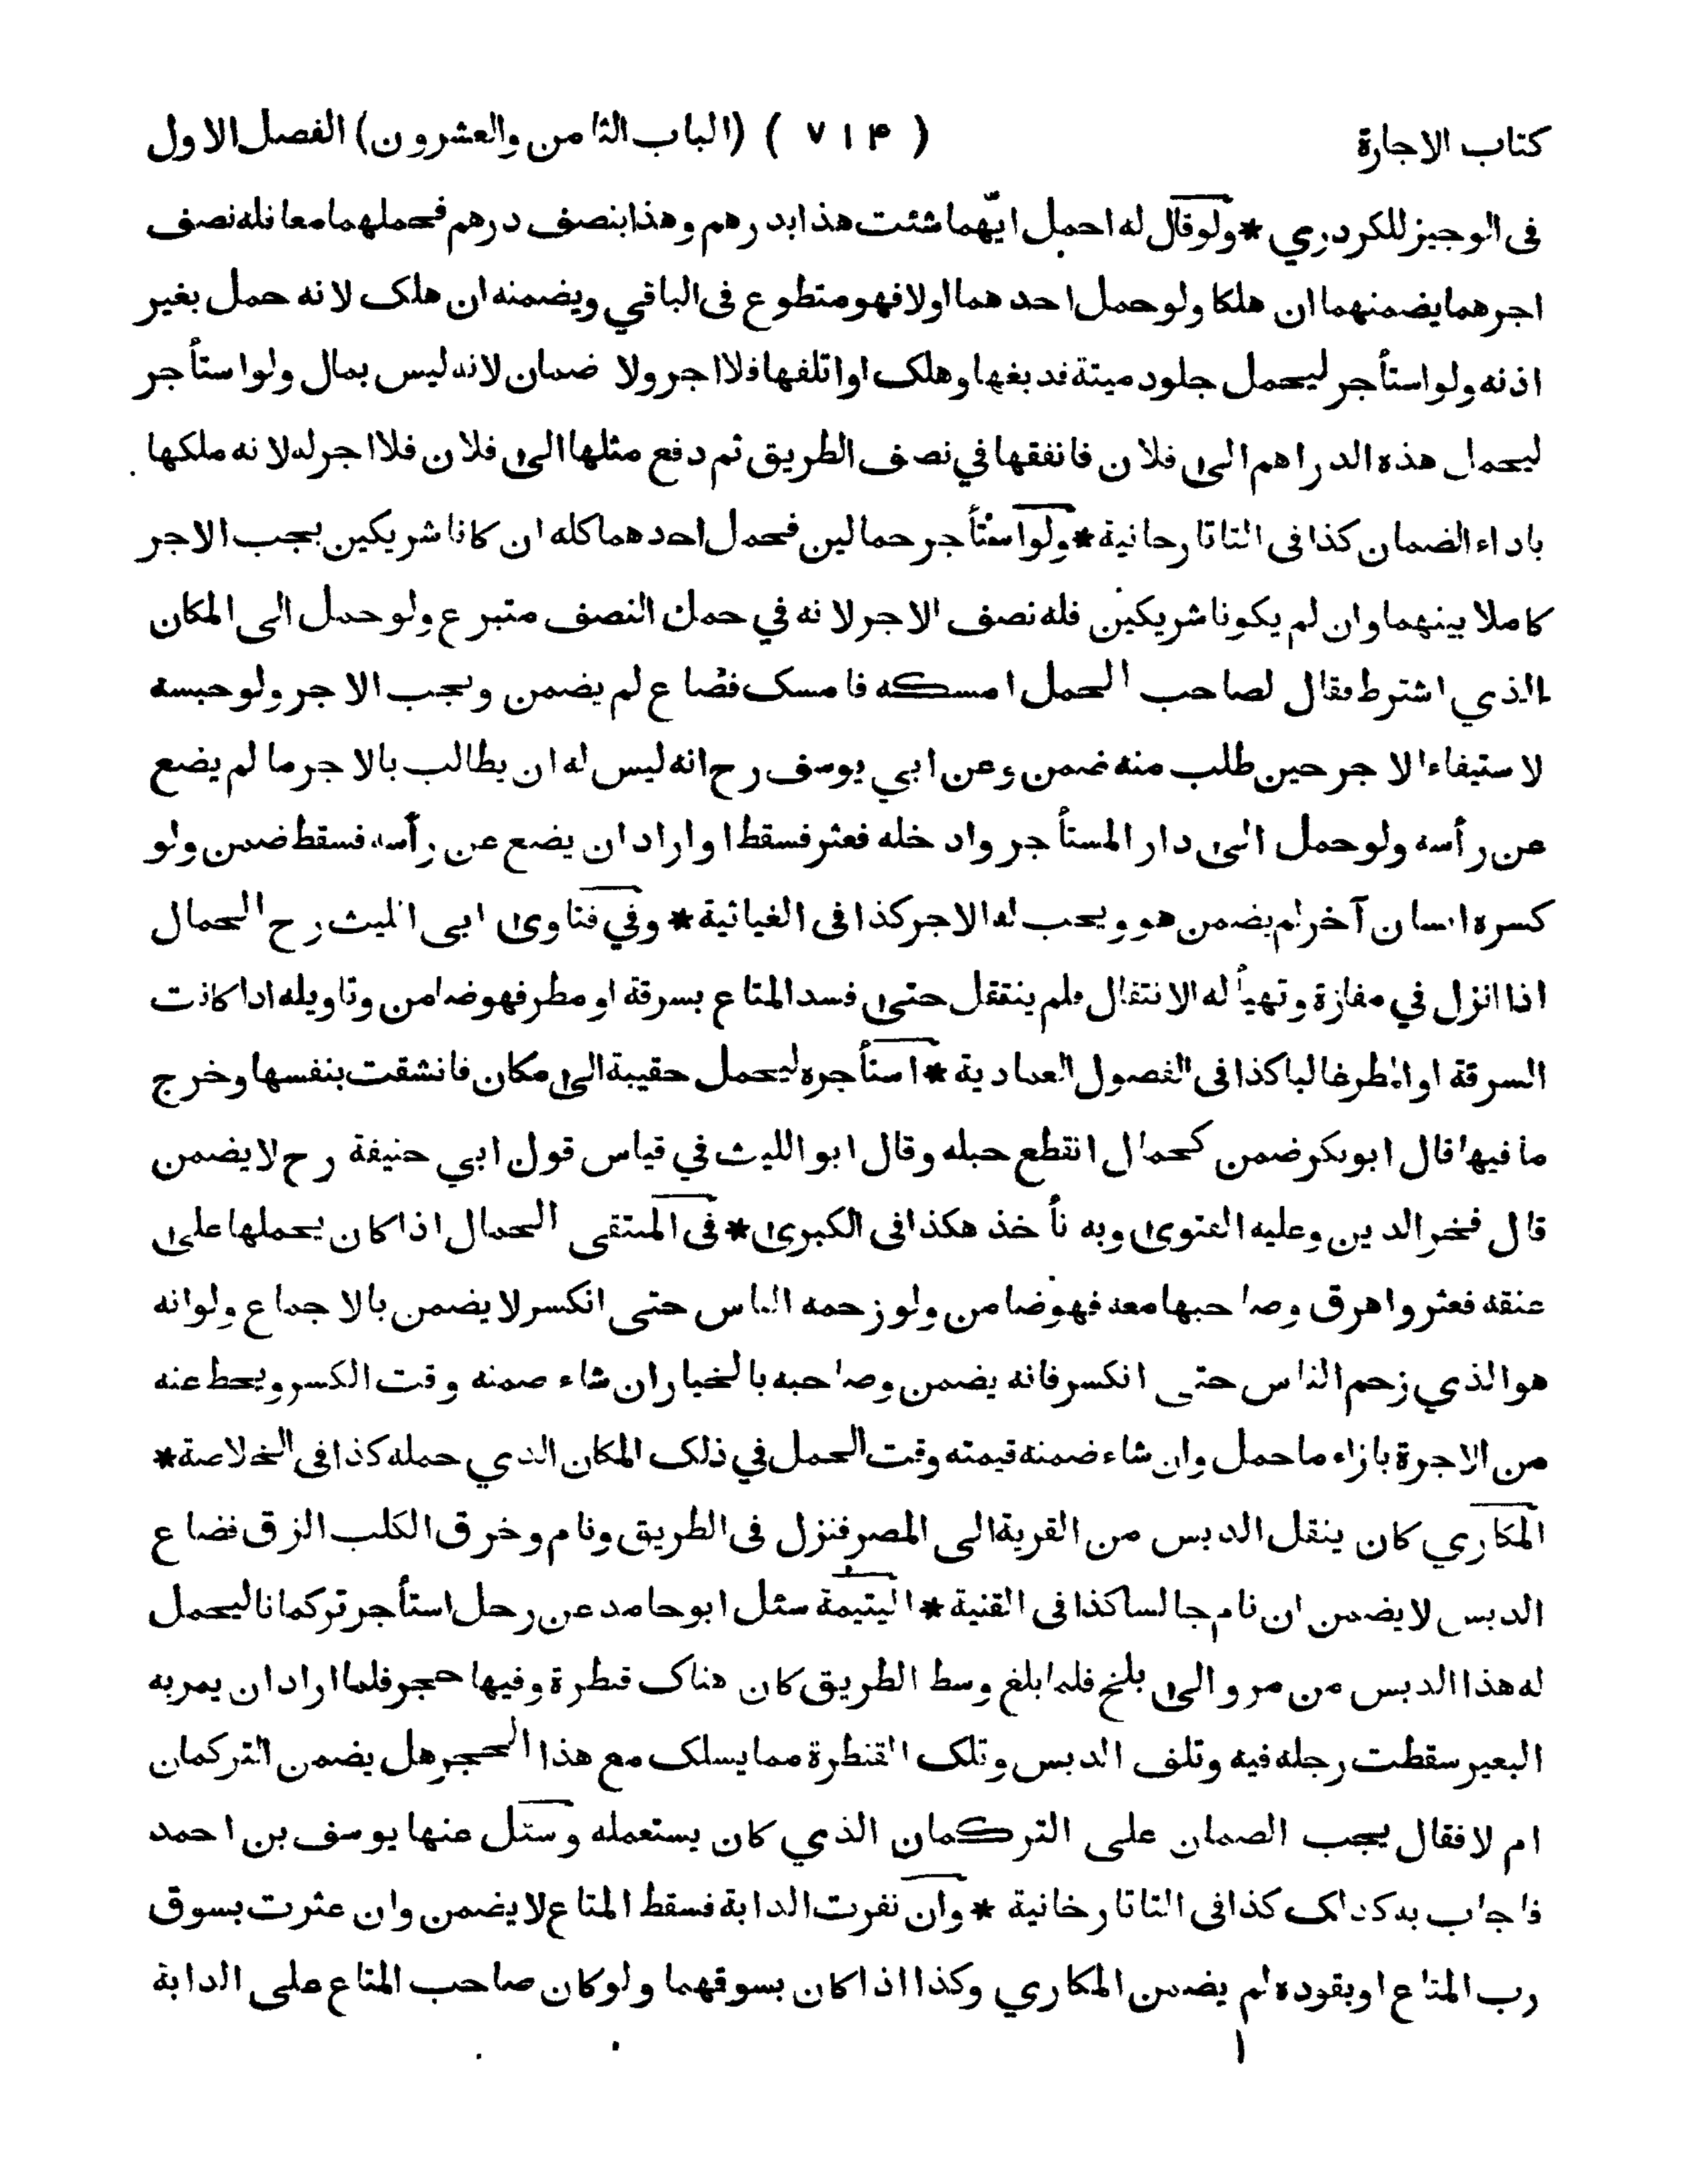 كتاب الاجارة ( ٧١٤ ) (الباب الثامن والعشرون) الفصل الاول
فى الوجيز للكردري * ولو قال له احمل ايّهما شئت هذا بدرهم وهذا بنصف درهم فحملهما معا فله نصف
اجرهما يضمنهما ان هلكا ولو حمل احدهما اولا فهو متطوع فى الباقي ويضمنه ان هلك لانه حمل بغير
اذنه ولو استأجر ليحمل جلود ميتة فدبغها وهلك او اتلفها فلا اجر ولا ضمان لانه ليس بمال ولو استأجر
ليحمل هذه الدراهم الى فلان فانفقها في نصف الطريق ثم دفع مثلها الى فلان فلا اجر له لانه ملكها
باداء الضمان كذا فى التاتارخانية * ولو استأجر حمالين فحمل احدهما كله ان كانا شريكين يجب الاجر
كاملا بينهما وان لم يكونا شريكين فله نصف الاجر لانه في حمل النصف متبرع ولو حمل الى المكان
الذي اشترط فقال لصاحب الحمل امسكه فامسك فضاع لم يضمن ويجب الاجر ولو حبسه
لاستيفاء الاجر حين طلب منه ضمن وعن ابي يوسف رح انه ليس له ان يطالب بالاجر ما لم يضع
عن رأسه ولو حمل الى دار المستأجر وادخله فعثر فسقط او اراد ان يضع عن رأسه فسقط ضمن ولو
كسره انسان آخر لم يضمن هو ويجب له الاجر كذا فى الغياثية * وفي فتاوى ابى الليث رح الحمال
اذا انزل في مفازة وتهيأ له الانتقال فلم ينتقل حتى فسد المتاع بسرقة او مطر فهو ضامن وتاويله اذا كانت
السرقة او المطر غالبا كذا فى الفصول العمادية * استأجره ليحمل حقيبة الى مكان فانشقت بنفسها وخرج
ما فيها قال ابو بكر ضمن كحمال انقطع حبله وقال ابو الليث في قياس قول ابي حنيفة رح لا يضمن
قال فخر الدين وعليه الفتوى وبه نأخذ هكذا فى الكبرى * فى المنتقى الحمال اذا كان يحملها على
عنقه فعثر واهرق وصاحبها معه فهو ضامن ولو زحمه الناس حتى انكسر لا يضمن بالاجماع ولو انه
هو الذي زحم الناس حتى انكسر فانه يضمن وصاحبه بالخيار ان شاء ضمنه وقت الكسر ويحط عنه
من الاجرة بازاء ما حمل وان شاء ضمنه قيمته وقت الحمل في ذلك المكان الذي حمله كذا فى الخلاصة *
المكاري كان ينقل الدبس من القرية الى المصر فنزل فى الطريق ونام وخرق الكلب الزق فضاع
الدبس لا يضمن ان نام جالسا كذا فى القنية * اليتيمة سئل ابو حامد عن رجل استأجر تركمانا ليحمل
له هذا الدبس من مرو الى بلخ فلما بلغ وسط الطريق كان هناك قنطرة وفيها حجر فلما اراد ان يمر به
البعير سقطت رجله فيه وتلف الدبس وتلك القنطرة مما يسلك مع هذا الحجر هل يضمن التركمان
ام لا فقال يجب الضمان على التركمان الذي كان يستعمله وسئل عنها يوسف بن احمد
فاجاب به كذلك كذا فى التاتارخانية * وان نفرت الدابة فسقط المتاع لا يضمن وان عثرت بسوق
رب المتاع او بقوده لم يضمن المكاري وكذا اذا كان بسوقهما ولو كان صاحب المتاع على الدابة